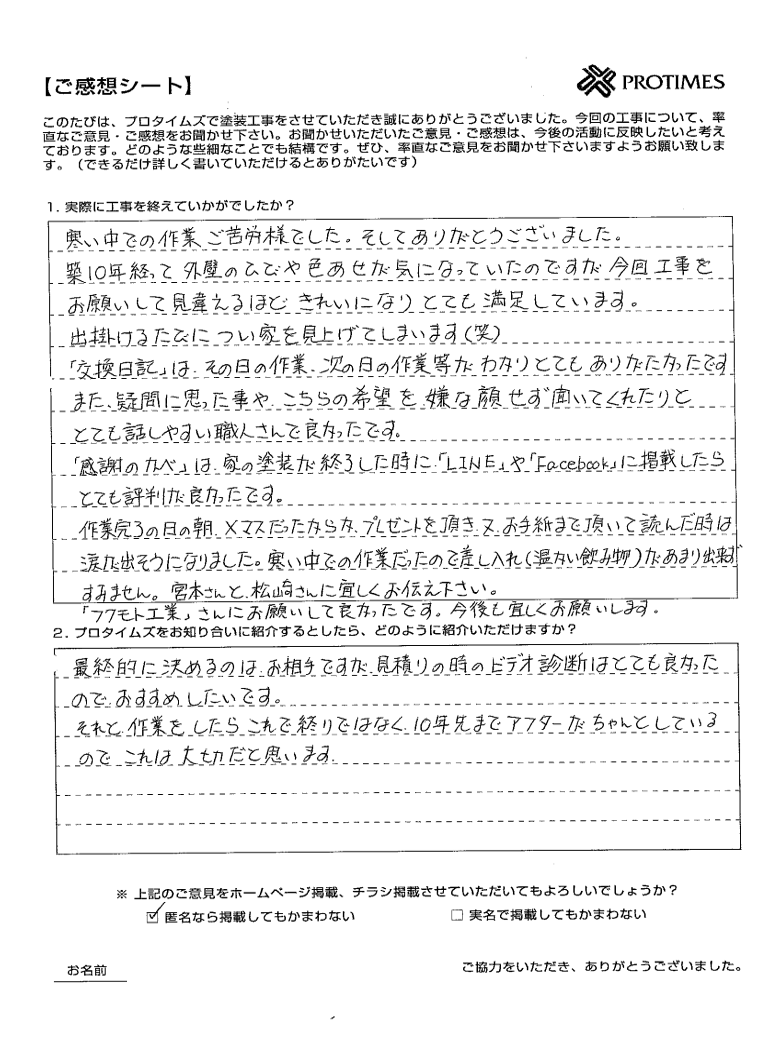 【ご感想シート】
PROTIMES
このたびは、プロタイムズで塗装工事をさせていただき誠にありがとうございました。今回の工事について、率
直なご意見・ご感想をお聞かせ下さい。お聞かせいただいたご意見・ご感想は、今後の活動に反映したいと考え
ております。どのような些細なことでも結構です。ぜひ、率直なご意見をお聞かせ下さいますようお願い致しま
す。（できるだけ詳しく書いていただけるとありがたいです）
1. 実際に工事を終えていかがでしたか？
寒い中での作業 ご苦労様でした。そしてありがとうございました。
築10年経って 外壁のひびや色あせが気になっていたのですが 今回工事を
お願いして見違えるほど きれいになり とても 満足しています。
出掛けるたびに つい家を見上げてしまいます(笑)
「交換日記」は、その日の作業、次の日の作業等が わかりとても ありがたかったです
また、疑問に思った事や、こちらの希望を 嫌な顔せず 聞いてくれたりと
とても話しやすい職人さんで良かったです。
「感謝のカベ」は、家の塗装が終了した時に「LINE」や「Facebook」に掲載したら
とても評判が良かったです。
作業完了の日の朝、Xマスだったからか、プレゼントを頂き、又、お手紙まで頂いて読んだ時は
涙が出そうになりました。寒い中での作業だったので差し入れ(温かい飲み物)があまり出来ず
すみません。宮本さんと、松崎さんに宜しくお伝え下さい。
「フクモト工業」さんにお願いして良かったです。今後も宜しくお願いします。
2. プロタイムズをお知り合いに紹介するとしたら、どのように紹介いただけますか？
最終的に決めるのは、お相手ですが、見積りの時のビデオ診断はとても良かった
ので、おすすめしたいです。
それと、作業をしたらこれで終りではなく、10年先までアフターが ちゃんとしている
ので、これは大切だと思います。
※ 上記のご意見をホームページ掲載、チラシ掲載させていただいてもよろしいでしょうか？
☑ 匿名なら掲載してもかまわない
□ 実名で掲載してもかまわない
お名前
ご協力をいただき、ありがとうございました。